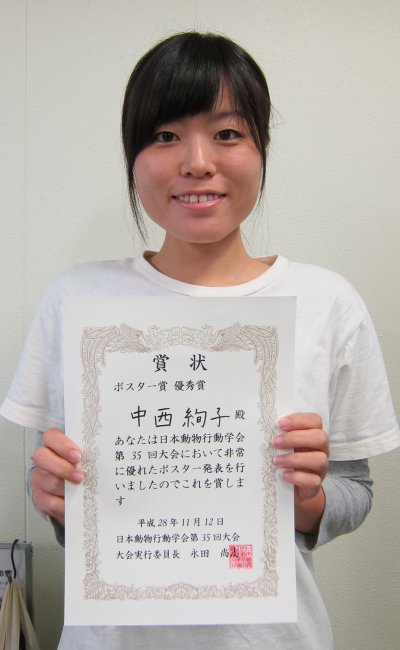 賞状
ポスター賞 優秀賞
中西 絢子 殿
あなたは日本動物行動学会
第35回大会において非常
に優れたポスター発表を行
いましたのでこれを賞しま
す
平成28年11月12日
日本動物行動学会第35回大会
大会実行委員長 永田 尚志